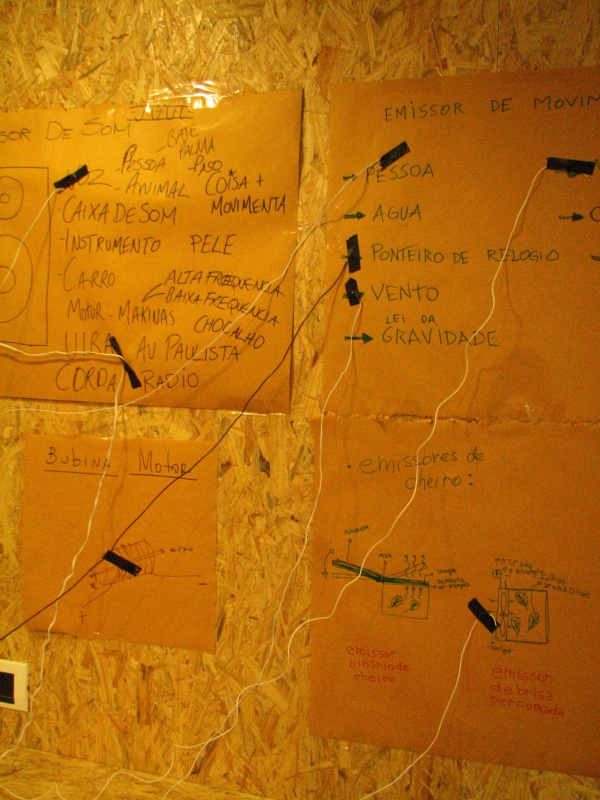 SOR DE SOM
BATE
PALMA
PESSOA
PASO
VOZ - ANIMAL
COISA +
MOVIMENTA
- CAIXA DE SOM
- INSTRUMENTO PELE
- CARRO
ALTA FREQUENCIA
BAIXA FREQUENCIA
MOTOR - MAKINAS
CHOCALHO
AV. PAULISTA
CORDA RADIO
EMISSOR DE MOVIM
PESSOA
AGUA
PONTEIRO DE RELOGIO
VENTO
LEI DA
GRAVIDADE
Bubina Motor
emissores de
cheiro:
emissor
binário de
cheiro
entrada
folhas
aromáticas
emissor
de brisa
perfumada